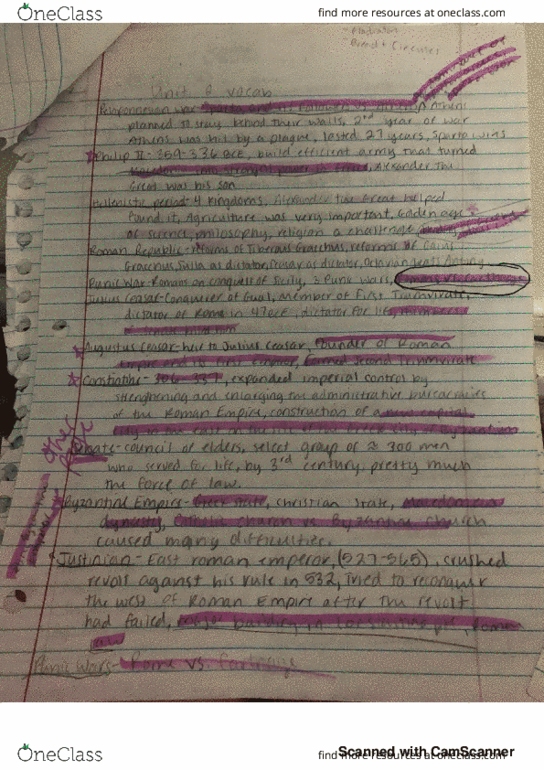 OneClass
find more resources at oneclass.com
- Bread + Circuses
Unit 6 vocab
Peloponnesian war- Athens
planned to stay behind their walls, 2nd year of war
Athens was hit by a plague, lasted 27 years, Sparta wins
Philip II- 359-336 BCE, build efficient army that turned
Macedonia into Alexander the
Great was his son.
Hellenistic period- 4 kingdoms, Alexander the Great helped
found it, Agriculture was very important, Golden age
of science, philosophy, religion a challenge
Roman Republic- reforms of Tiberius Gracchus, reforms of Gaius
Gracchus, Sulla as dictator, Caesar as dictator, Octavian
Punic War- Roman conquest of Sicily, 3 Punic Wars,
Julius Ceasar- Conquerer of Gaul, Member of First Triumvirate,
dictator of Rome in 47 BCE, dictator for life,
Augustus Ceasar- heir to Julius Ceasar, Founder of Roman
Empire and its First Emperor, formed Second Triumvirate
Constantine- 306-337, expanded imperial control by
strengthening and enlarging the administrative
of the Roman Empire, construction of a new capital
city in the east on the site of the Greek City of Byzantium
Senate- council of elders, select group of ≈ 300 men
who served for life, by 3rd century, pretty much
the force of law.
Byzantine Empire- Greek state, christian state, Macedonian
dynasty, Catholic church vs Byzantine church
caused many difficulties.
Justinian- East roman emperor, (527-565), crushed
revolt against his rule in 532, Tried to reconquer
the west of Roman Empire after the revolt
had failed, major building in
law
Punic Wars- Rome vs. Carthage
OneClass
find more resources at oneclass.com
Scanned with CamScanner